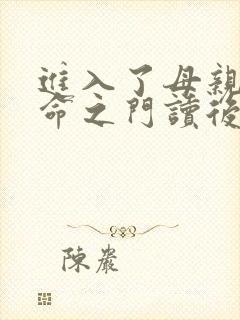 進入了母親
命之門讀後
陳巖